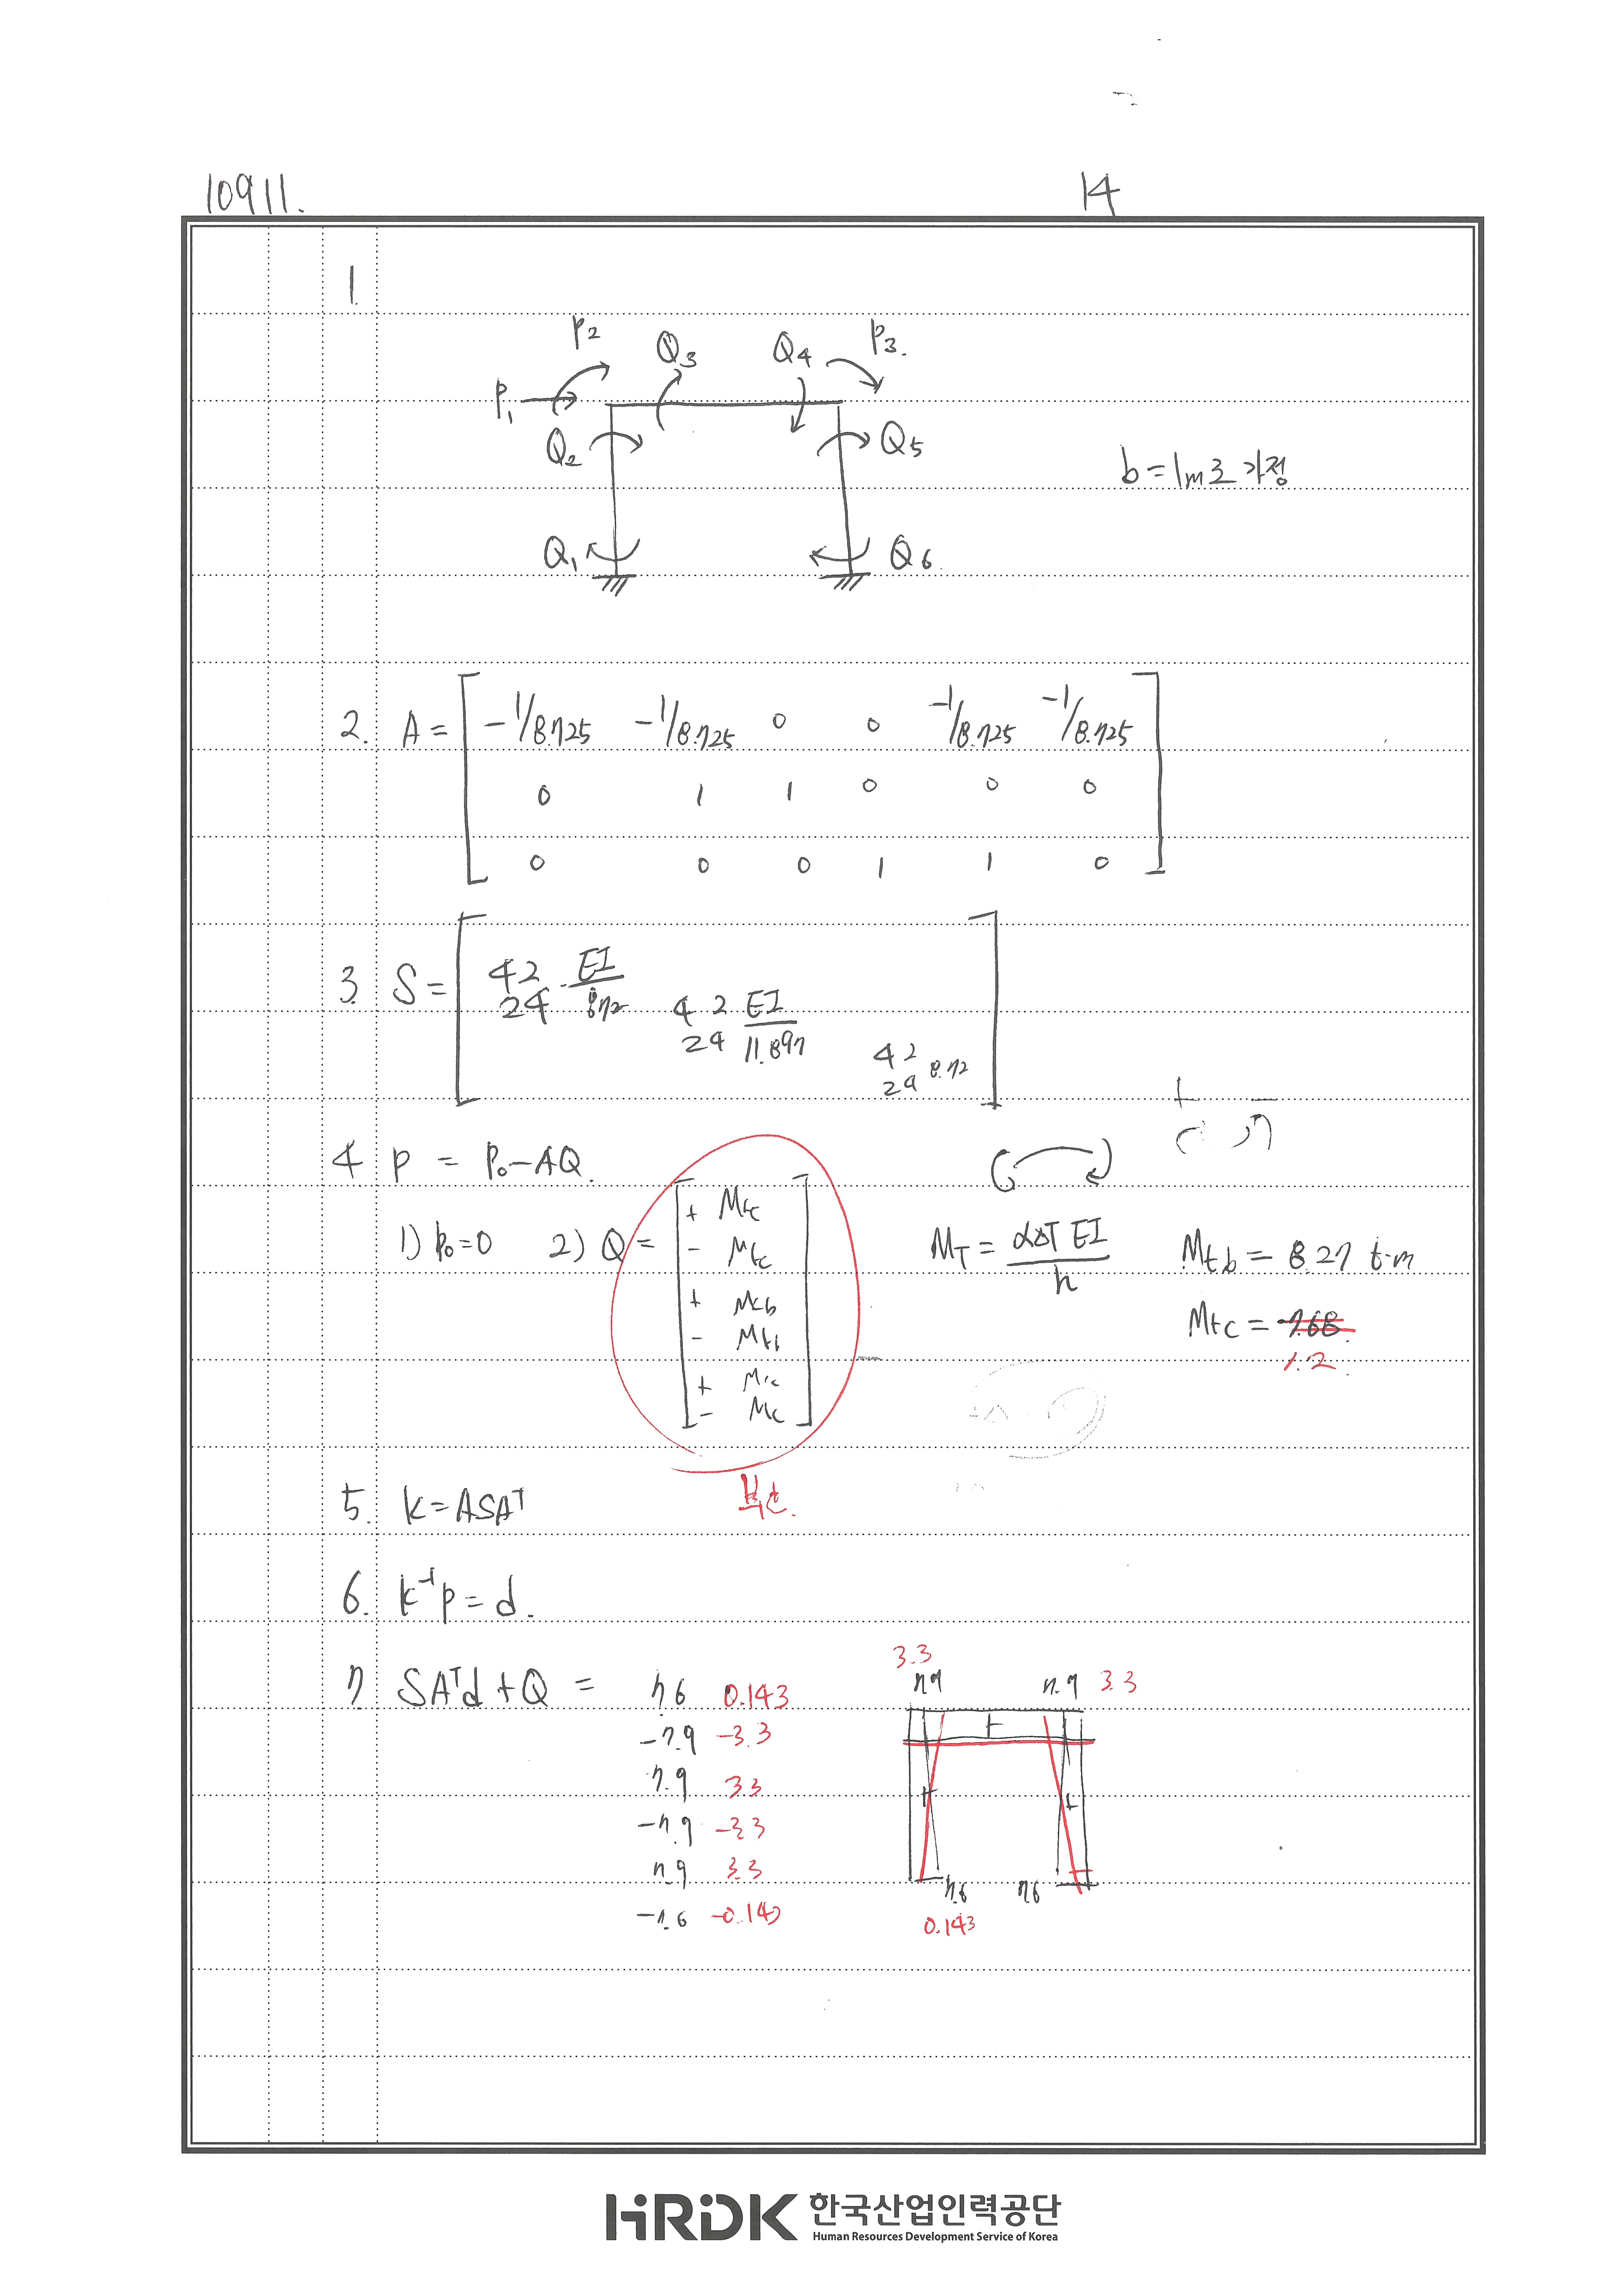 10911.
14
1.
P2 Q3 Q4 P3.
P1
Q2 Q5
b=1m로 가정
Q1 Q6.
2. A = [ -1/8.725 -1/8.725 0 0 -1/8.725 -1/8.725
0 1 1 0 0 0
0 0 0 1 1 0 ]
3. S = [ 4 2 EI
2 4 8.72
4 2 EI
2 4 11.897
4 2
2 4 8.72 ]
+ -
4 P = P0-AQ.
1) P0=0 2) Q = [ + Mtc
- Mtc
+ Mtb
- Mtb
+ Mtc
- Mc ]
MT = α∆T EI / h
Mtb = 8.27 t·m
Mtc = 7.68
1.2
부호.
5. K=ASAT
6. K-1P = d.
7 SATd + Q = 7.6 0.143
-7.9 -3.3
7.9 3.3
-7.9 -3.3
7.9 3.3
-7.6 -0.143
3.3
7.9 7.9 3.3
+
+
7.6 7.6
0.143
HRDK 한국산업인력공단
Human Resources Development Service of Korea